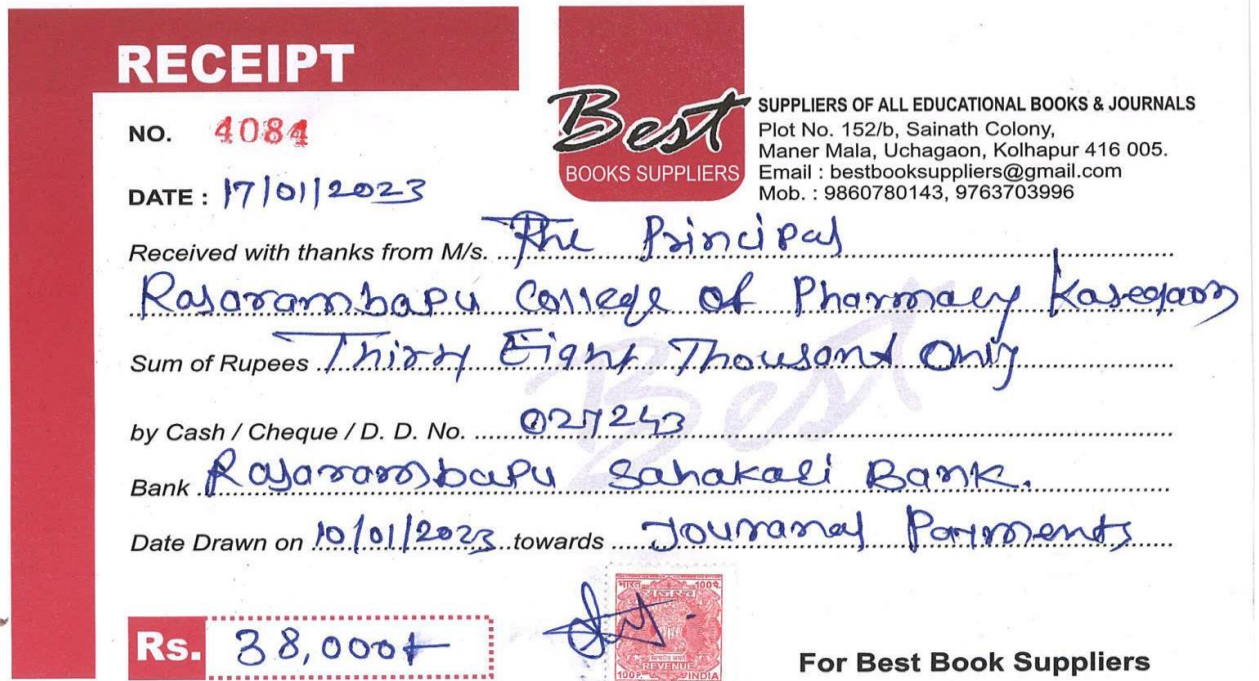 RECEIPT
NO. 4084
DATE : 17/01/2023
Best
BOOKS SUPPLIERS
SUPPLIERS OF ALL EDUCATIONAL BOOKS & JOURNALS
Plot No. 152/b, Sainath Colony,
Maner Mala, Uchagaon, Kolhapur 416 005.
Email : bestbooksuppliers@gmail.com
Mob. : 9860780143, 9763703996
Received with thanks from M/s. The Principal
Rajarambapu College of Pharmacy Kasegaon
Sum of Rupees Thirty Eight Thousand Only
by Cash / Cheque / D. D. No. 027243
Bank Rajarambapu Sahakari Bank.
Date Drawn on 10/01/2023 towards Jouranal Payments
Best
Rs. 38,000/-
भारत 100प.
REVENUE
100P. INDIA
For Best Book Suppliers